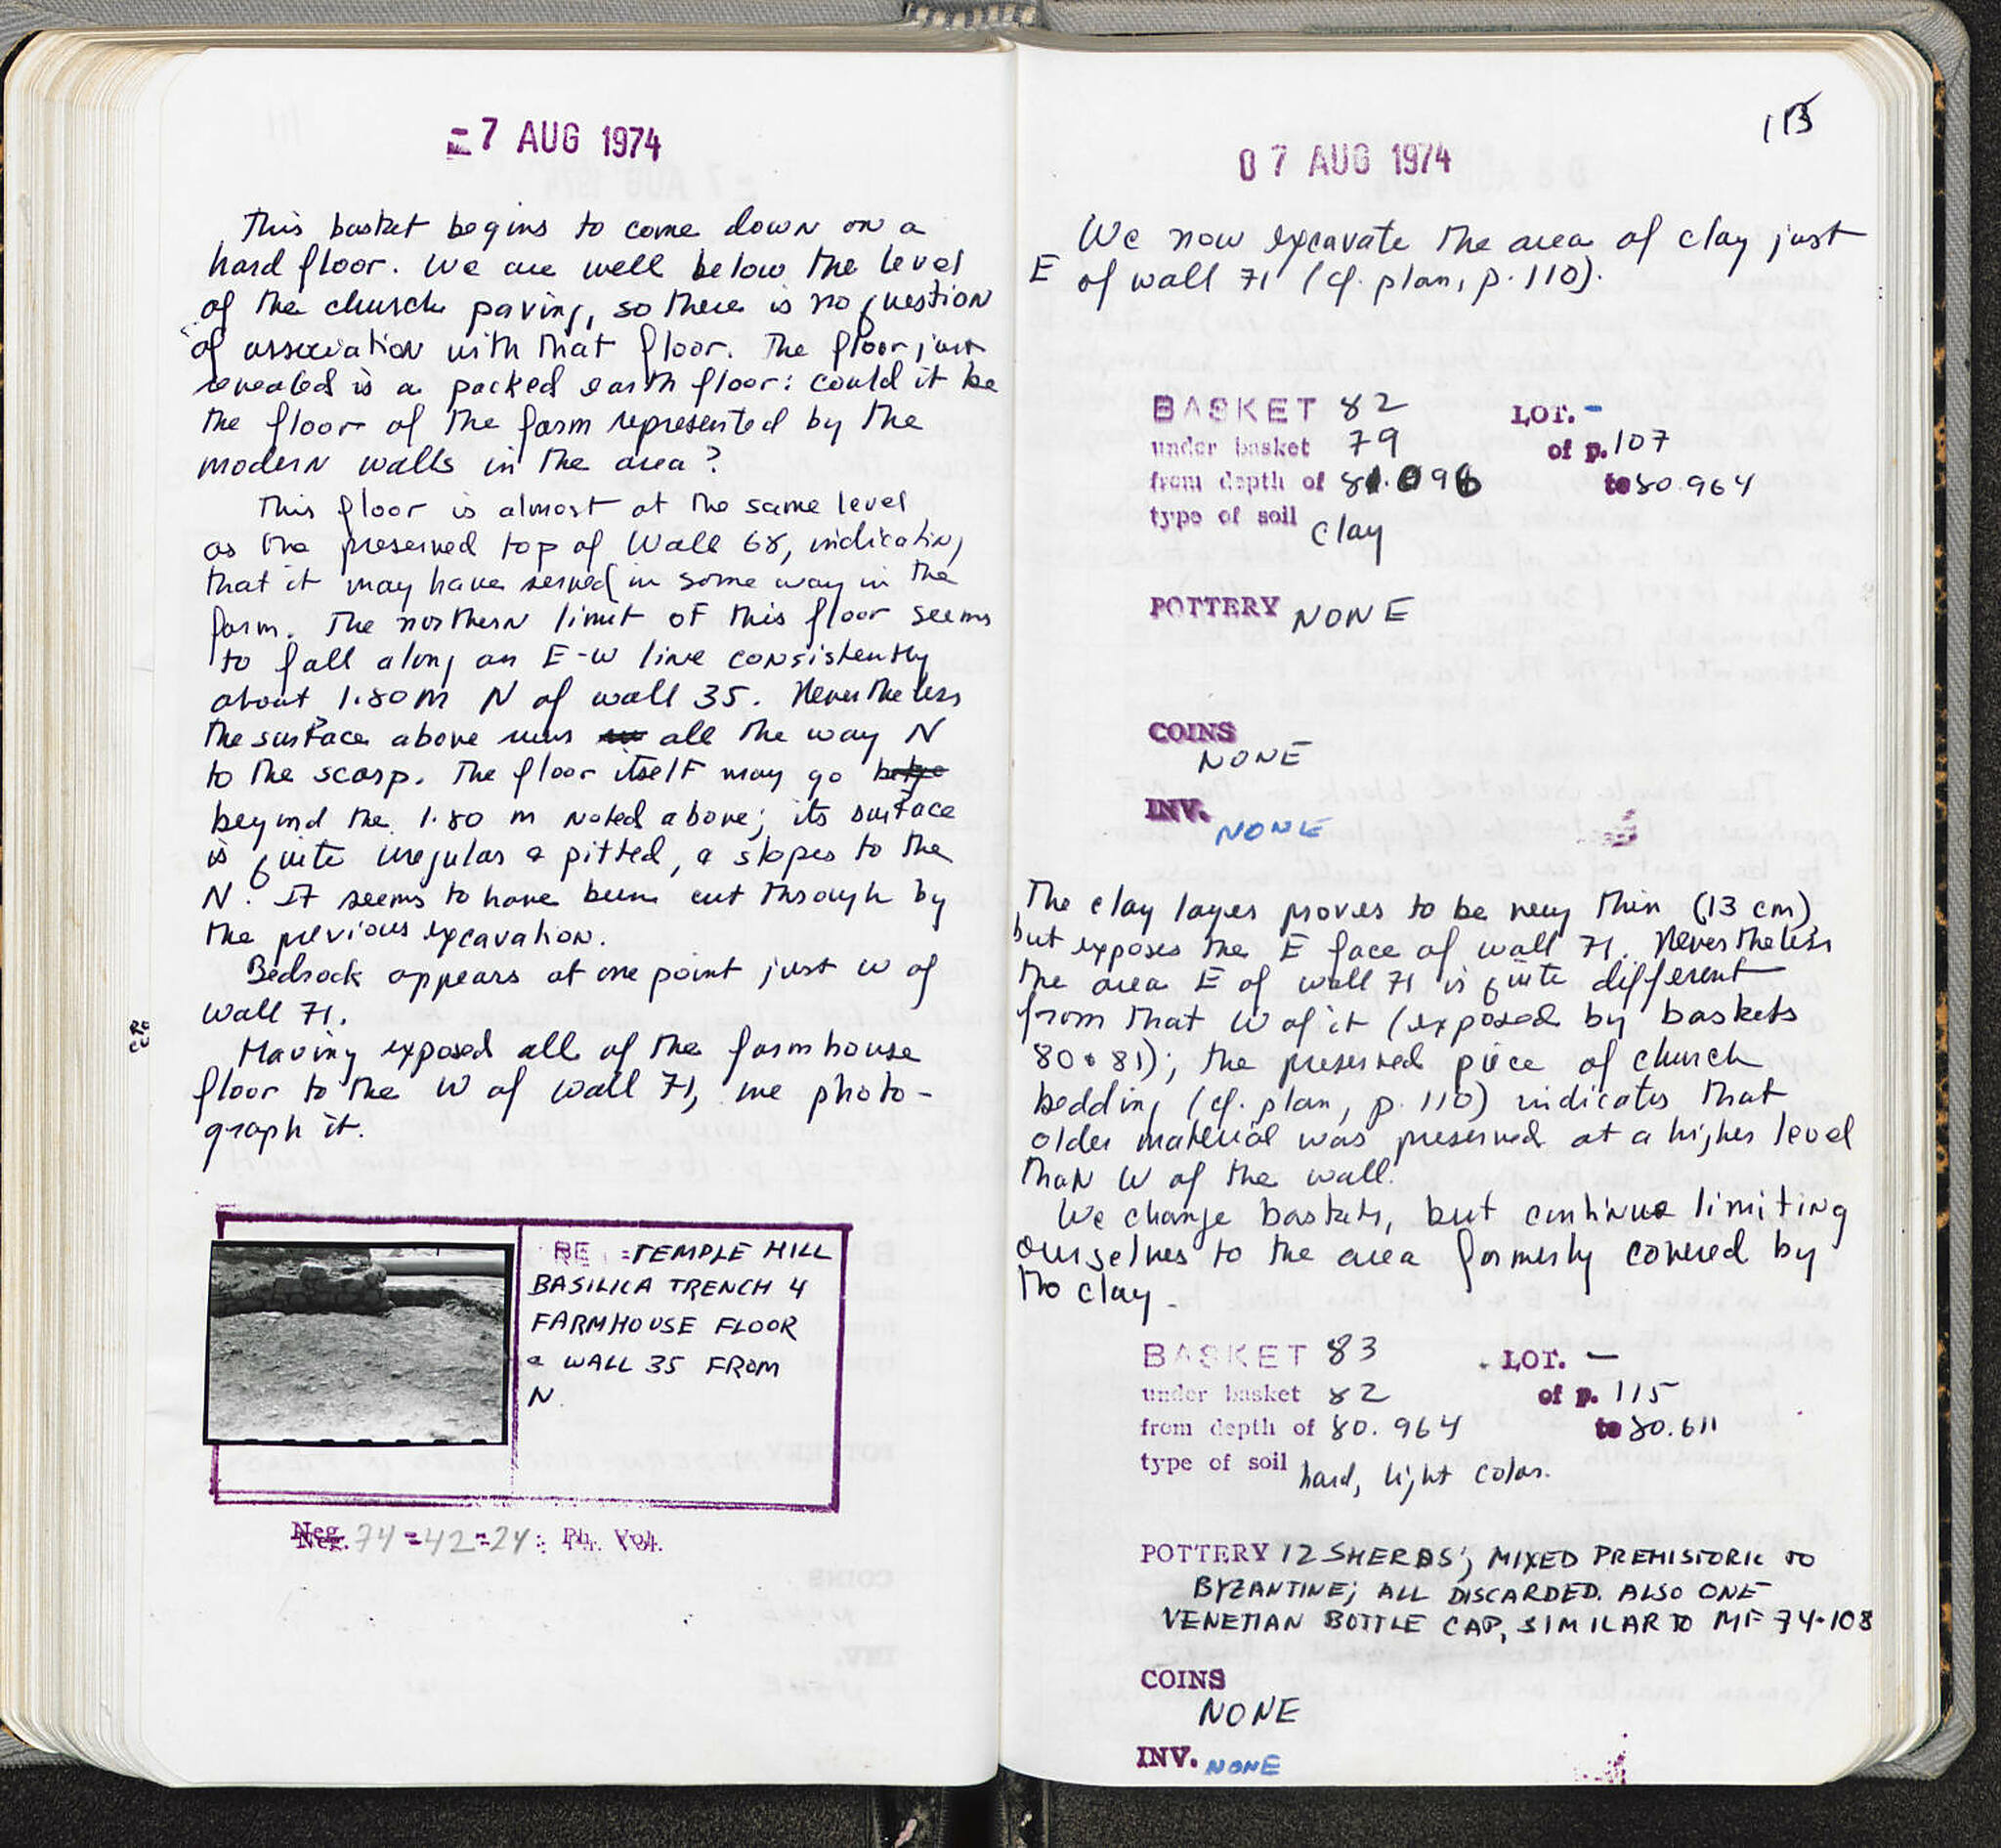 = 7 AUG 1974
This basket begins to come down on a
hard floor. We are well below the level
of the church paving, so there is no question
of association with that floor. The floor just
revealed is a packed earth floor: could it be
the floor of the farm represented by the
modern walls in the area?
This floor is almost at the same level
as the preserved top of Wall 68, indicating
that it may have served in some way in the
farm. The northern limit of this floor seems
to fall along an E-W line consistently
about 1.80 m N of wall 35. Nevertheless
the surface above runs all the way N
to the scarp. The floor itself may go
beyond the 1.80 m noted above; its surface
is quite irregular & pitted, & slopes to the
N. It seems to have been cut through by
the previous excavation.
Bedrock appears at one point just W of
wall 71.
Having exposed all of the farmhouse
floor to the W of wall 71, we photo-
graph it.
RE : TEMPLE HILL
BASILICA TRENCH 4
FARMHOUSE FLOOR
& WALL 35 FROM
N.
Neg. 74-42-24 : Ph. Vol.
07 AUG 1974
We now excavate the area of clay just
E of wall 71 (cf. plan, p. 110).
BASKET 82 LOT. -
under basket 79 of p. 107
from depth of 81.096 to 80.964
type of soil clay
POTTERY NONE
COINS
NONE
INV. NONE
The clay layer proves to be very thin (13 cm)
but exposes the E face of wall 71. Nevertheless
the area E of wall 71 is quite different
from that W of it (exposed by baskets
80 & 81); the preserved piece of church
bedding (cf. plan, p. 110) indicates that
older material was preserved at a higher level
than W of the wall.
We change baskets, but continue limiting
ourselves to the area formerly covered by
the clay.
BASKET 83 LOT. -
under basket 82 of p. 115
from depth of 80.964 to 80.611
type of soil hard, light color.
POTTERY 12 SHERDS; MIXED PREHISTORIC TO
BYZANTINE; ALL DISCARDED. ALSO ONE
VENETIAN BOTTLE CAP, SIMILAR TO MF 74-108
COINS
NONE
INV. NONE